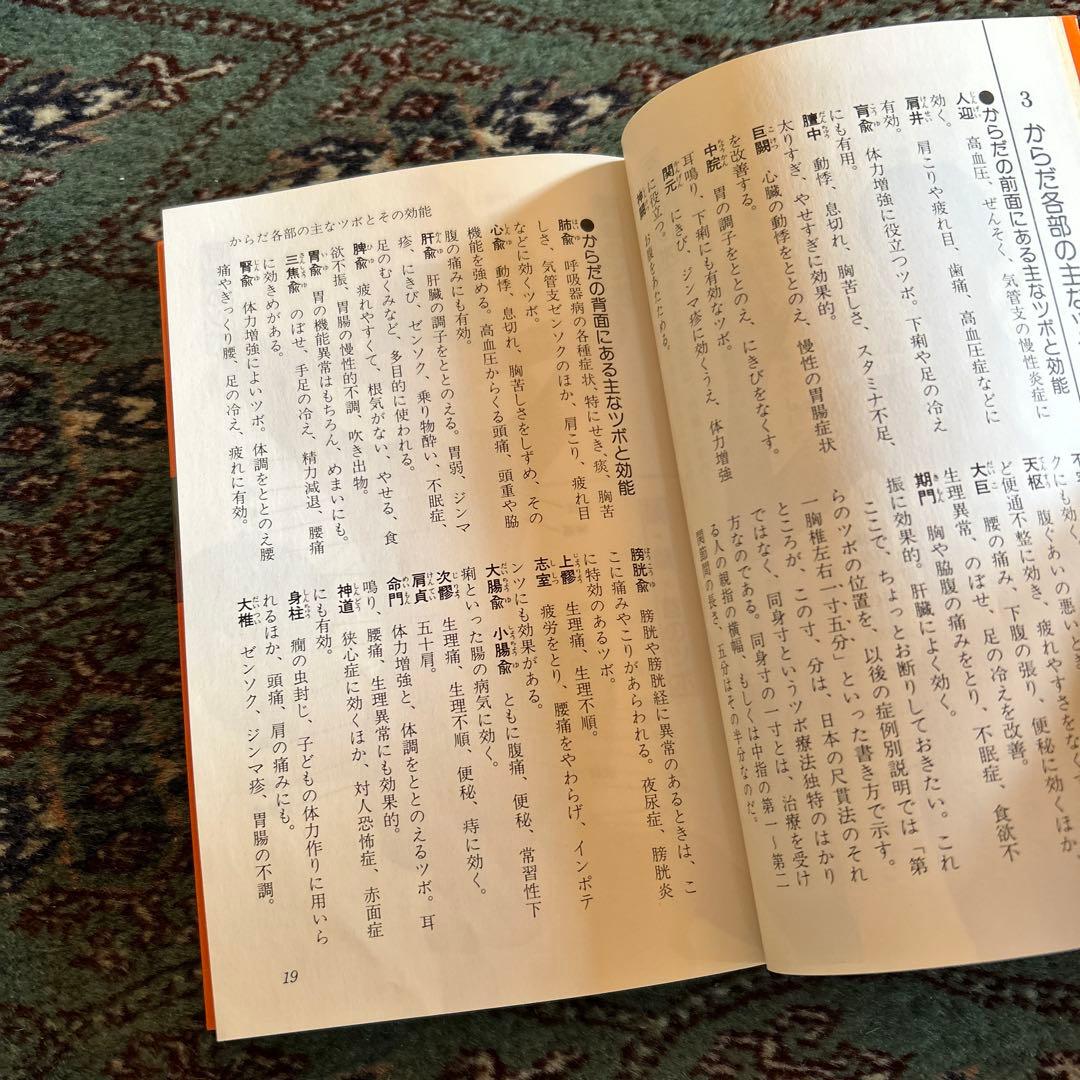 3 からだ各部の主なツ
●からだの前面にある主なツボと効能
人迎 高血圧、ぜんそく、気管支の慢性炎症に
効く。
肩井 肩こりや疲れ目、歯痛、高血圧症などに
有効。
肓兪 体力増強に役立つツボ。下痢や足の冷え
にも有用。
膻中 動悸、息切れ、胸苦しさ、スタミナ不足、
太りすぎ、やせすぎに効果的。
巨闕 心臓の動悸をととのえ、慢性の胃腸症状
を改善する。
中脘 胃の調子をととのえ、にきびをなくす。
耳鳴り、下痢にも有効なツボ。
関元 にきび、ジンマ疹に効くうえ、体力増強
に役立つ。
お腹をあたためる。
クにも効く。
天枢 腹ぐあいの悪いと
ど便通不整に効き、疲れやすさをなく
大巨 腰の痛み、下腹の張り、便秘に効くほか、
生理異常、のぼせ、足の冷えを改善。
期門 胸や脇腹の痛みをとり、不眠症、食欲不
振に効果的。肝臓によく効く。
ここで、ちょっとお断りしておきたい。これ
らのツボの位置を、以後の症例別説明では「第
一胸椎左右一寸五分」といった書き方で示す。
ところが、この寸、分は、日本の尺貫法のそれ
ではなく、同身寸というツボ療法独特のはかり
方なのである。同身寸の一寸とは、治療を受け
る人の親指の横幅、もしくは中指の第一〜第二
関節間の長さ、五分はその半分なのだ。
からだ各部の主なツボとその効能
●からだの背面にある主なツボと効能
肺兪 呼吸器病の各種症状、特にせき、痰、胸苦
しさ、気管支ゼンソクのほか、肩こり、疲れ目
などに効くツボ。
心兪 動悸、息切れ、胸苦しさをしずめ、その
機能を強める。高血圧からくる頭痛、頭重や脇
腹の痛みにも有効。
肝兪 肝臓の調子をととのえる。胃弱、ジンマ
疹、にきび、ゼンソク、乗り物酔い、不眠症、
足のむくみなど、多目的に使われる。
脾兪 疲れやすくて、根気がない、やせる、食
欲不振、胃腸の慢性的不調、吹き出物。
胃兪 胃の機能異常はもちろん、めまいにも。
三焦兪 のぼせ、手足の冷え、精力減退、腰痛
に効きめがある。
腎兪 体力増強によいツボ。体調をととのえ腰
痛やぎっくり腰、足の冷え、疲れに有効。
膀胱兪 膀胱や膀胱経に異常のあるときは、こ
こに痛みやこりがあらわれる。夜尿症、膀胱炎
に特効のあるツボ。
上髎 生理痛、生理不順。
志室 疲労をとり、腰痛をやわらげ、インポテ
ンツにも効果がある。
大腸兪 小腸兪 ともに腹痛、便秘、常習性下
痢といった腸の病気に効く。
次髎 生理痛、生理不順、便秘、痔に効く。
肩貞 五十肩。
命門 体力増強と、体調をととのえるツボ。耳
鳴り、腰痛、生理異常にも効果的。
神道 狭心症に効くほか、対人恐怖症、赤面症
にも有効。
身柱 癇の虫封じ、子どもの体力作りに用いら
れるほか、頭痛、肩の痛みにも。
大椎 ゼンソク、ジンマ疹、胃腸の不調。
19